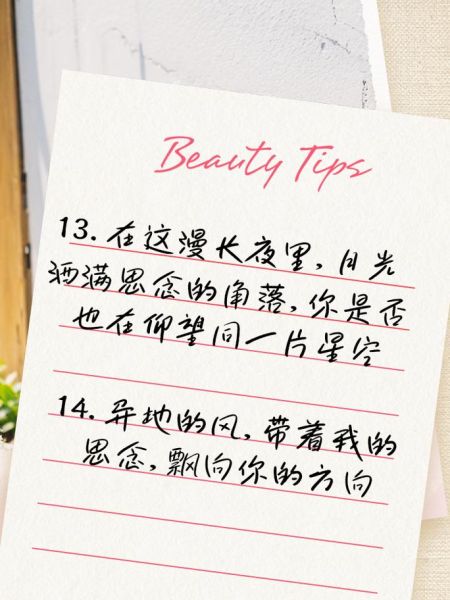 Beauty Tips
13. 在这漫长夜里,月光
洒满思念的角落,你是否
也在仰望同一片星空
14. 异地的风,带着我的
思念,飘向你的方向